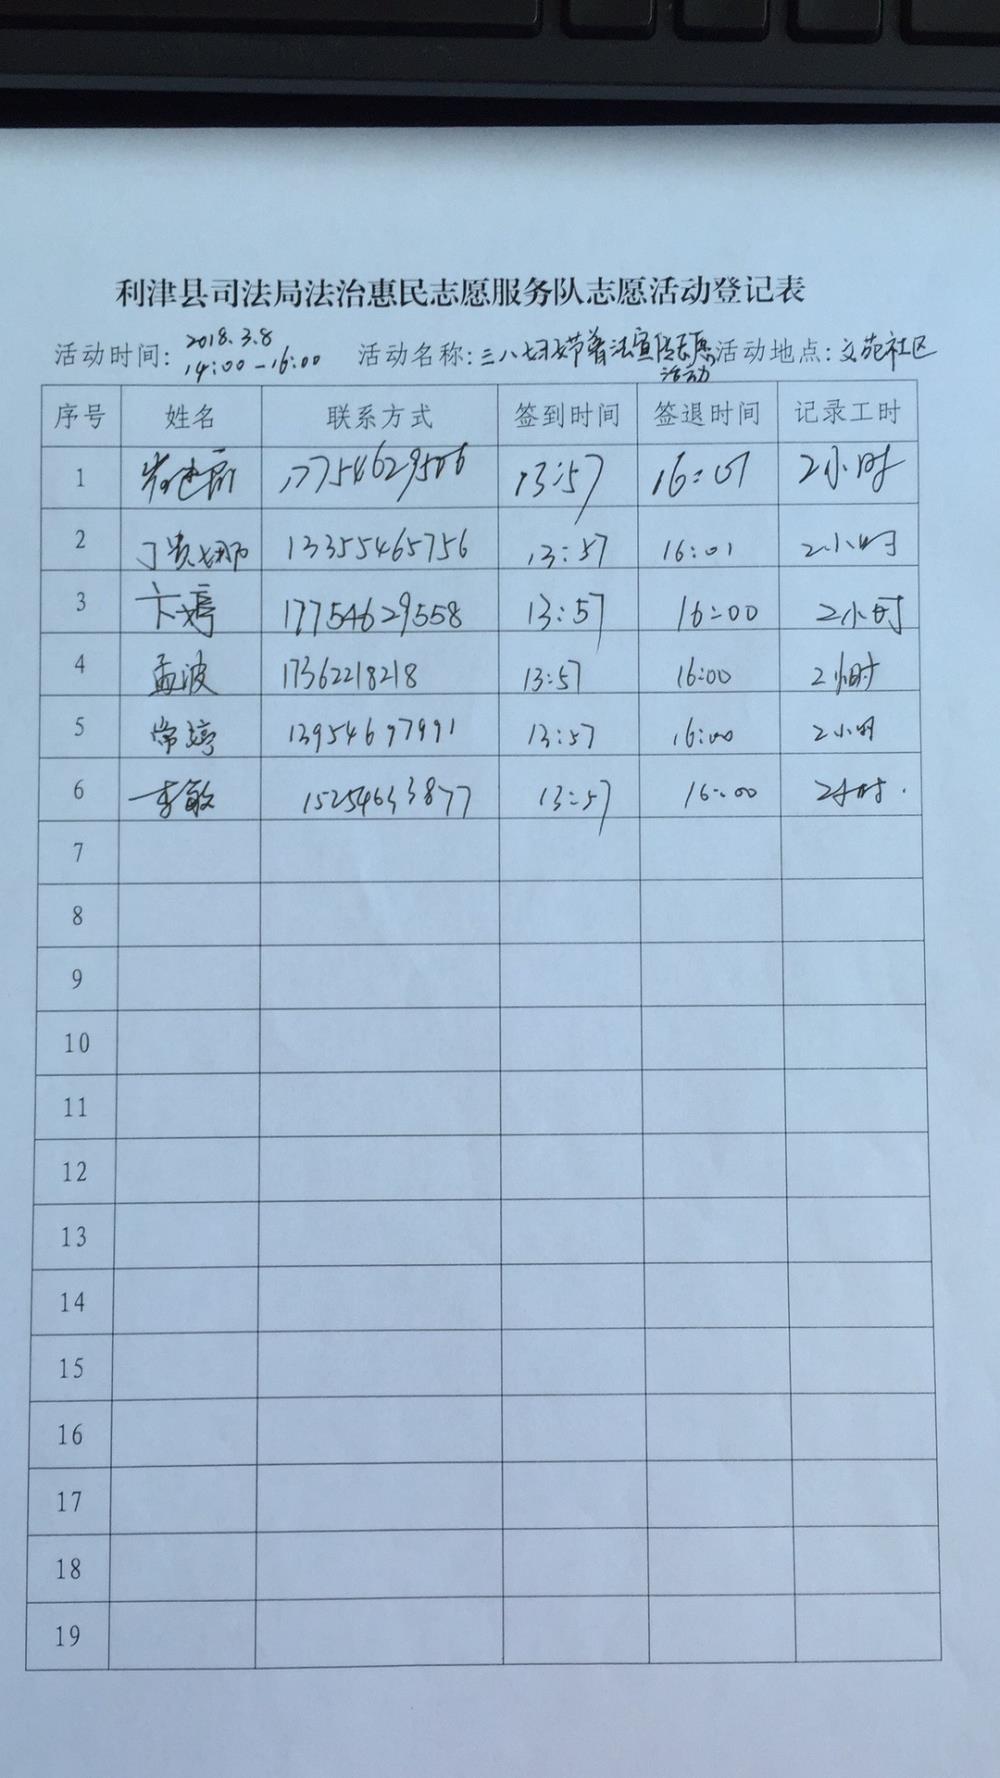 利津县司法局法治惠民志愿服务队志愿活动登记表
活动时间：2018.3.8 14:00-16:00 活动名称：三八妇女节普法宣传志愿活动 活动地点：文苑社区
序号 姓名 联系方式 签到时间 签退时间 记录工时
1 17754629506 13:57 16:01 2小时
2 丁贵娜 13355465756 13:57 16:01 2小时
3 卞婷 17754629558 13:57 16:00 2小时
4 孟波 17362218218 13:57 16:00 2小时
5 常婷 13954697991 13:57 16:00 2小时
6 李敏 15254633877 13:57 16:00 2小时.
7
8
9
10
11
12
13
14
15
16
17
18
19